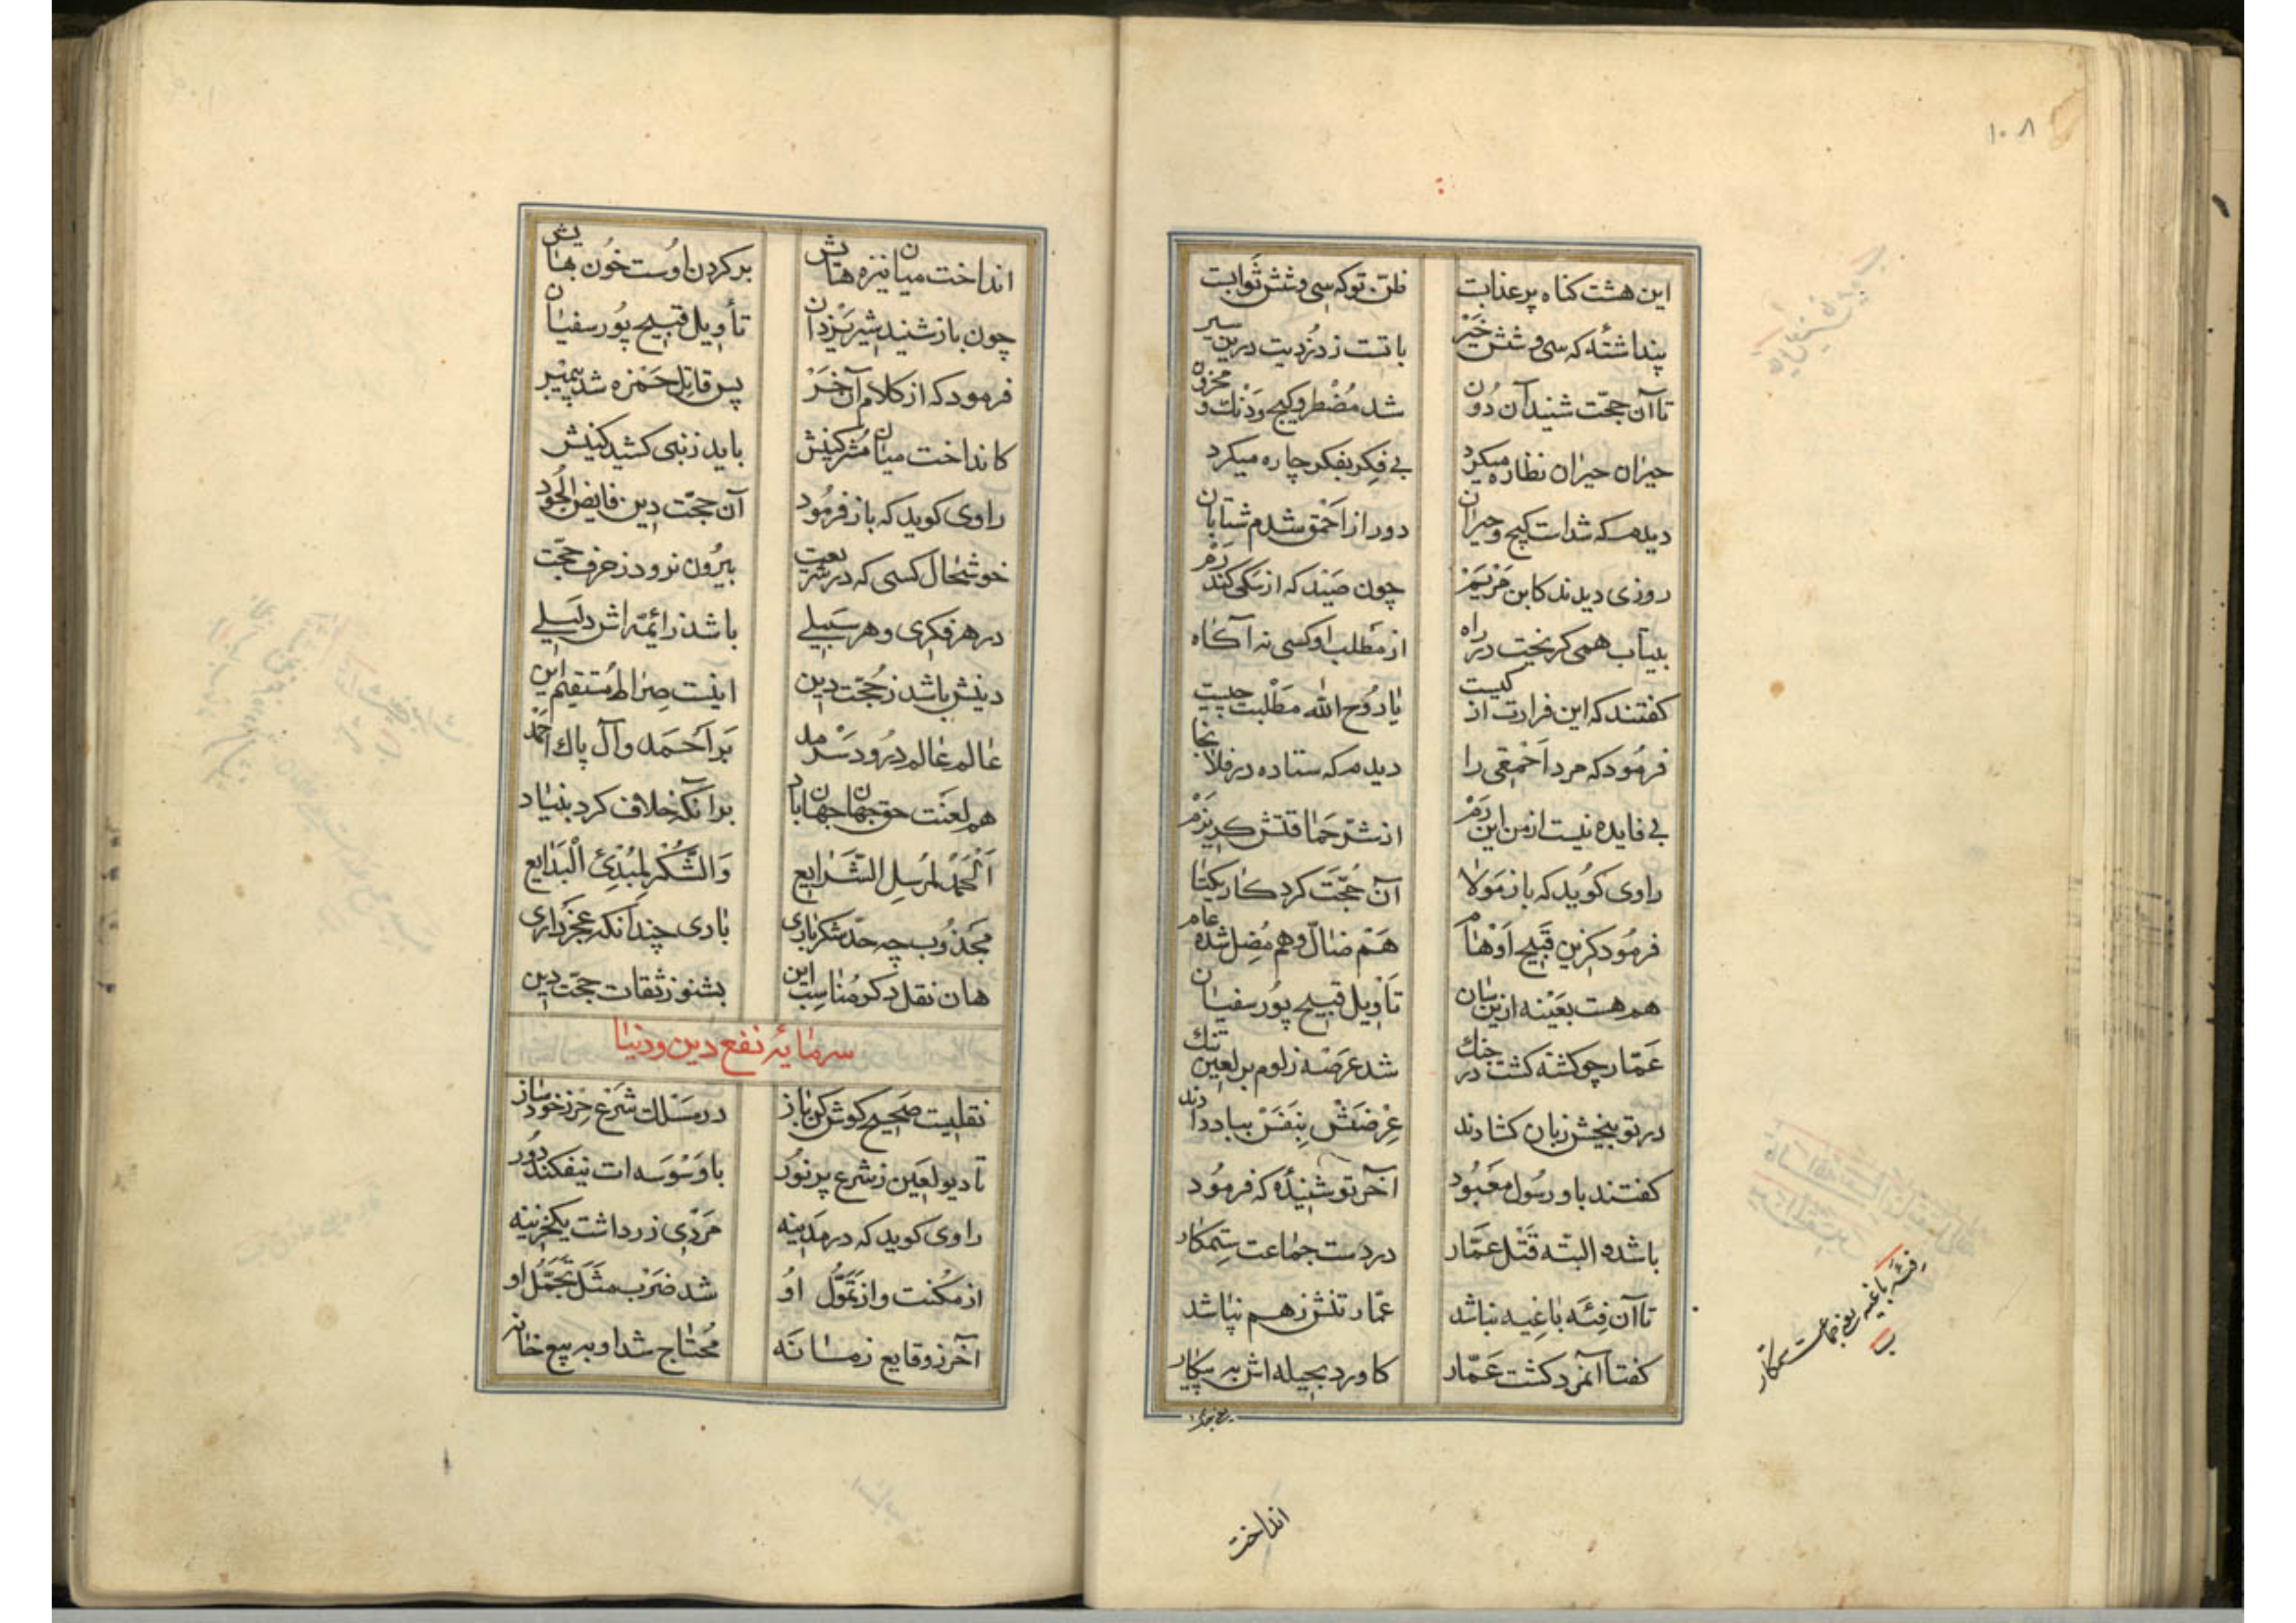 ۱۰۸
این هشت کناه پر عذابت    ظن تو که سی و شش ثوابت
پنداشتهٔ که سی و شش خیر    باتست ز دزدیت درین سیر
تا آن حجّت شنید آن دون    شد مُضْطر و کیج و دنك و محزون
حیران حیران نظاره میکرد    بی فِکر بفکر چاره میکرد
دیدم که شد است کیج و حیران    دور از اَحْمق شدم شتابان
روزی دیدند کابن مَرْیَمْ    چون صَیْد که از سکی کند رَمْ
بیتاب همی کریخت در راه    از مَطلب او کسی نه آکاه
کفتند که این فرارت از کیست    یا رُوح الله مَطْلبت چیست
فرمُود که مرد اَحْمِقی را    دیدم که ستاده در فلانجا
بی فایده نیست از من این رَمْ    از شرّ حَماقتش کریزم
راوی کوُید که باز مَولا    آن حُجّت کردکار یکتا
فرمُود کزین قَبیح اَوْهام    هَمْ ضالّ و هم مُضِل شده عام
هم هست بعَیْنه ازین سان    تَأویل قبیح پُور سفیان
عَمّار چو کشته کشت در جنك    شد عَرْصه ز لوم بر لعین تنك
در توبیخش زبان کشادند    عِرْضَشْ بِنَفَسْ بباد دادند
کفتند باو رسُول معَبُود    آخر تو شنیدهٔ که فرمُود
باشد البتّه قَتْل عمّار    در دست جماعت سِتمکار
تا آن فِئَه باغِیه نباشد    عمّار تنش ز هم نپاشد
کفتا آنمرد کشت عَمّار    کاورد بحیله اش به پیکار
فئهٔ باغیه یعنی جماعت ستمکار
انداخت
انداخت میان نیزه هایش    بر کردن اوست خُون بهایش
چون باز شنید شیر یَزْدان    تأویل قبیح پُور سفیان
فرمود که از کلام آن خَرْ    پس قاتِل حَمْزه شد پیمبر
کانداخت میان مُشرکینش    باید ز نبی کشید کینش
راوی کوید که باز فرمُود    آن حجّت دین فایض الجُود
خوشحال کسی که در شریعت    بیرُون نرود ز حرف حجّت
در هر فکری و هر سَبیلے    باشد ز ائمّه اش دلیلے
دینش باشد ز حُجّت دین    اینست صِراط مُستقیم این
عالم عالم درُود سَرْمد    بَر اَحمَد و آل پاك احمد
هم لعنَت حق جهان جهان باد    بر آنکه خلاف کرد بنیاد
اَلْحَمْدُ لمُرسِل الشّرایع    وَالشُّکْر لِمُبْدِئ الْبَدایع
مجَذُوب چه حدّ شکر باری    باری چندانکه عجز داری
هان نقل دکر مُناسِب این    بشنو ز ثقات حجّت دین
سرمایهٔ نفع دین و دنیا
نقلیست صَحیح کوش کن باز    در مَسْلك شرع حرز خود ساز
تا دیو لعَین ز شرع پر نوُر    با وَسْوَسه ات نیفکند دُور
راوی کوید که در مَدینه    مَرْدی زر داشت یكخزینه
از مکُنت و از تَمَوُّل اوُ    شد ضَرْب مثَل تَجَمُّل او
آخر ز وقایع زمانَه    مُحتاج شد او به بیع خانه